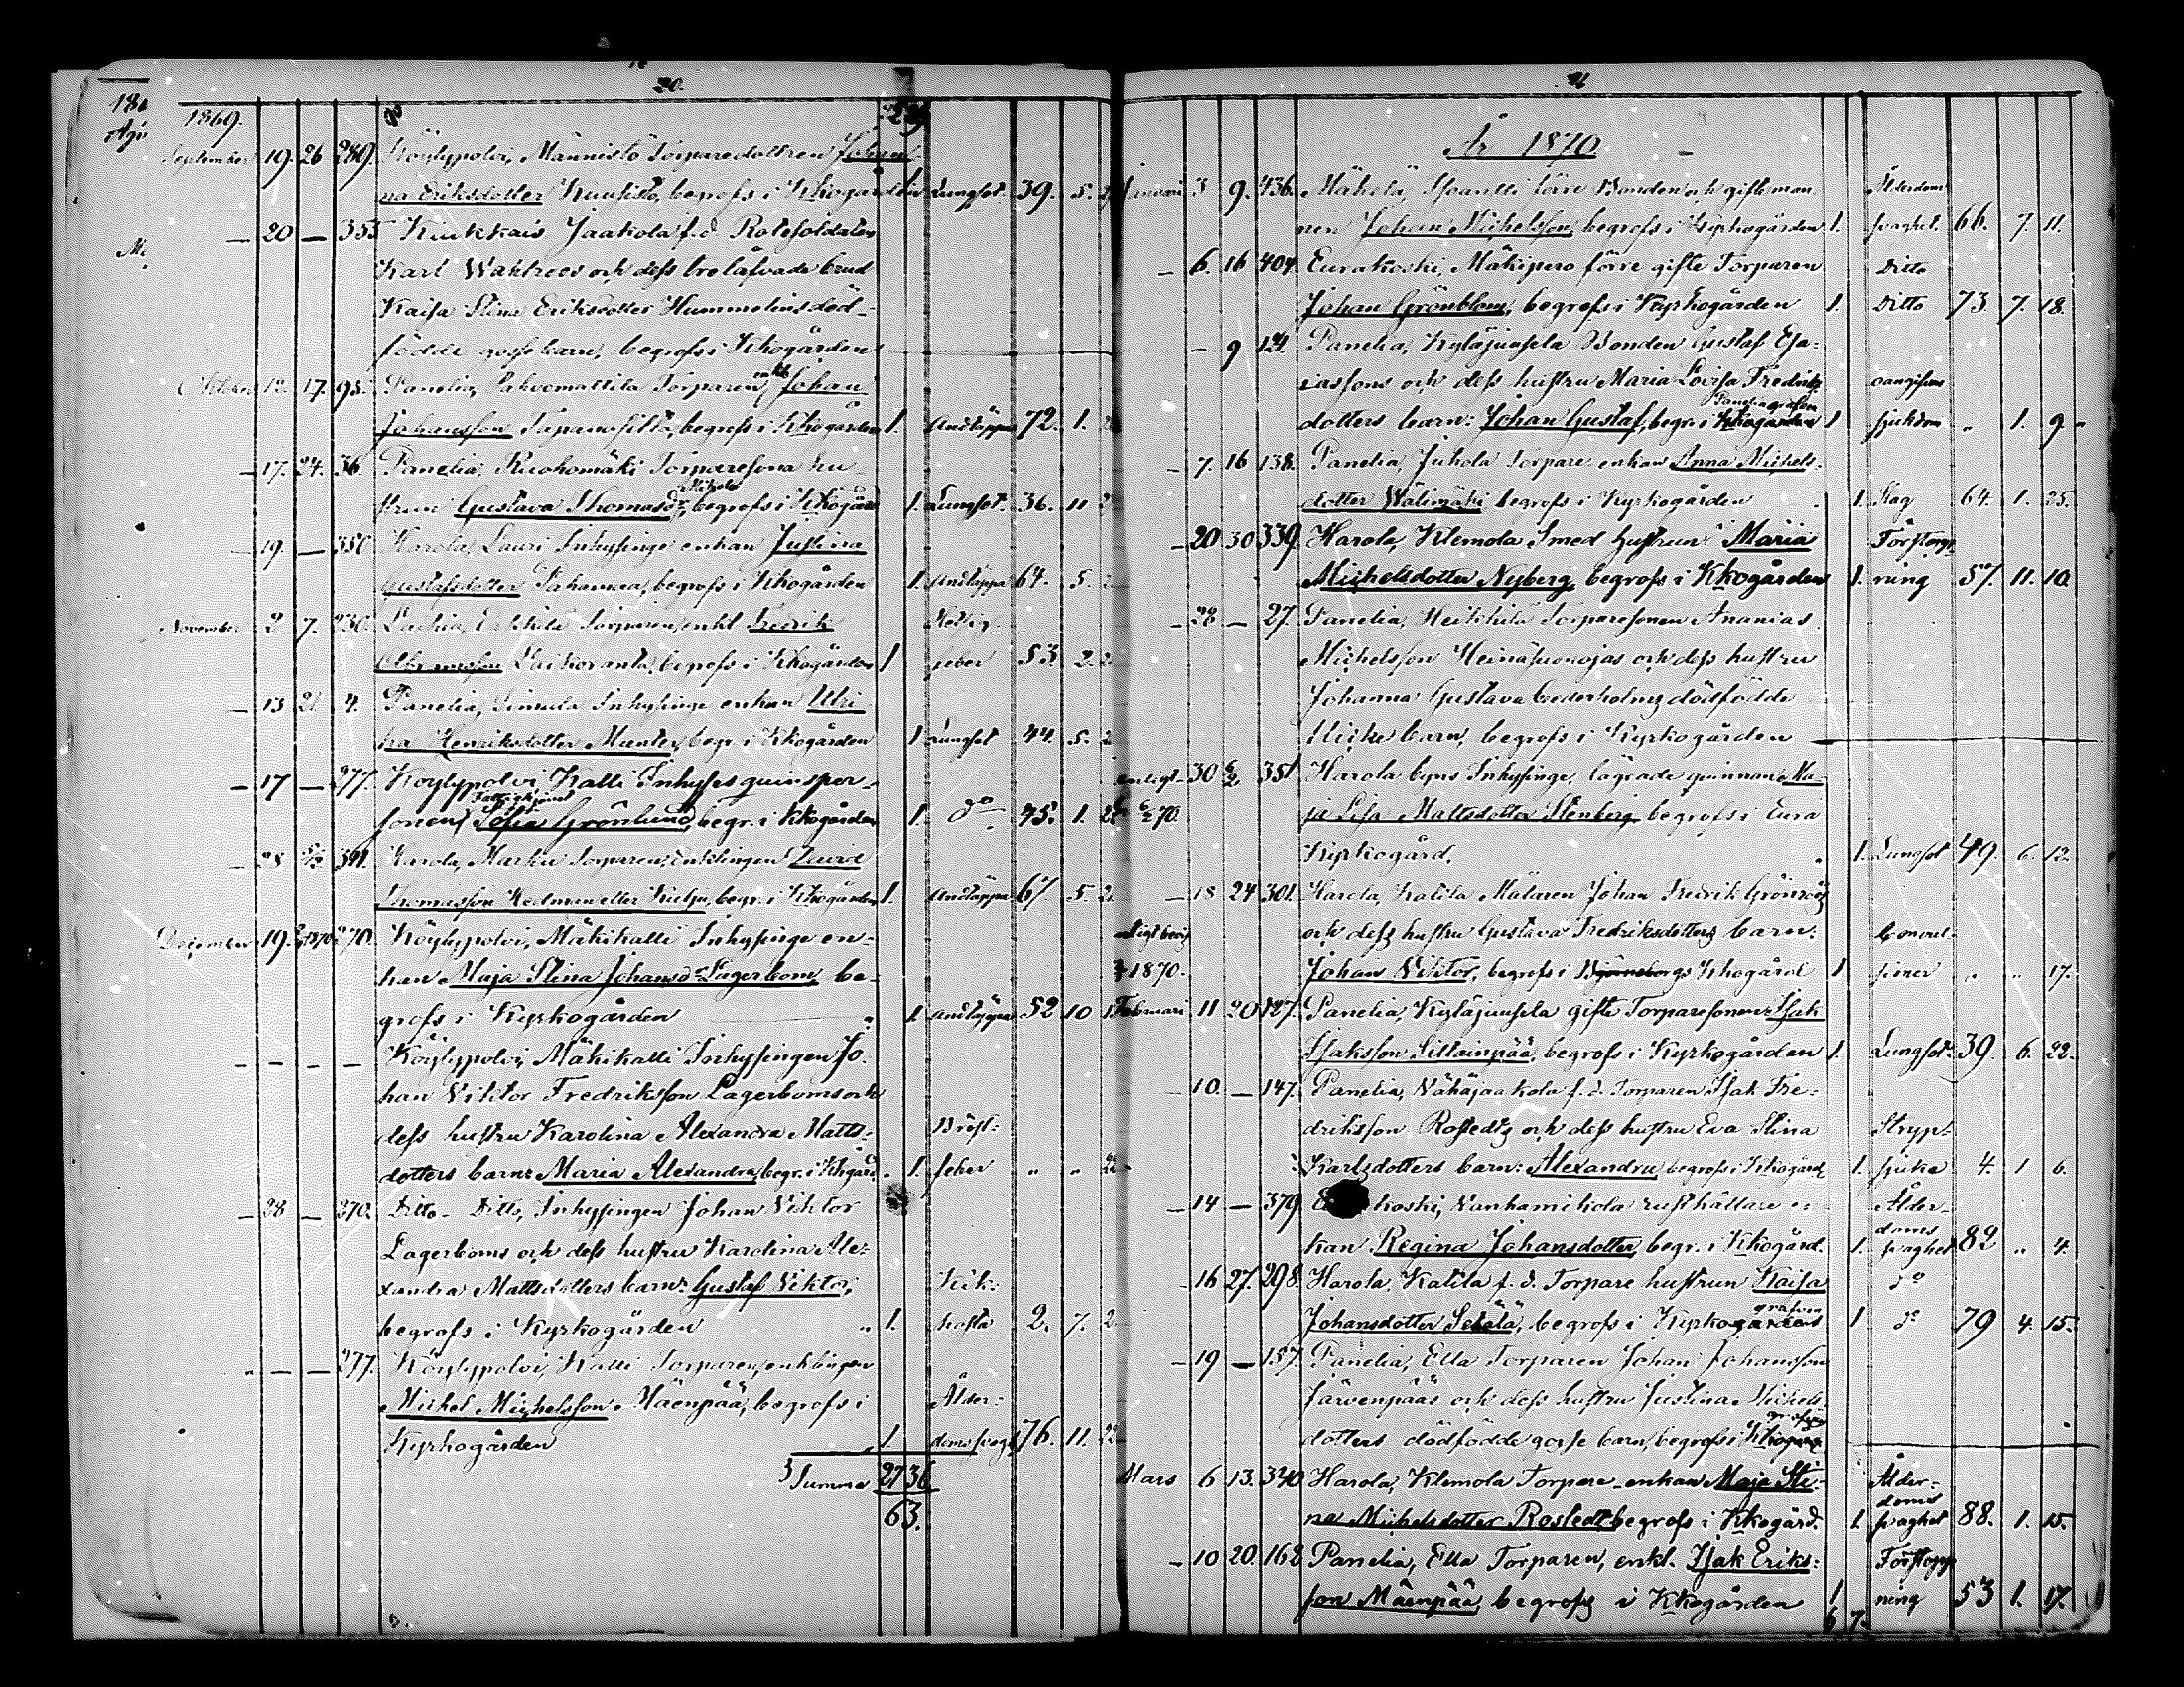 20.
1869.
September 19. 26 289. Köylypolvi, Männistö Torparedottren Johan-
na Eriksdotter Kuusisto, begrofs i Kkogården 1 Lungsot. 39. 5.
— 20 — 355 Kiukkais Jaakola f.d. Rotesoldaten
Karl Wahlroos och dess trolåfvade brud
Kaisa Stina Eriksdotter Hummelins död-
födde gossebarn, begrofs i Kkogården
October 12. 17. 95. Panelia, Torparen enkl. Johan
Johansson begrofs i Kkogården 1. Andtäppa 72. 1.
— 17. 24. 36. Panelia, Ruohomäki Torparesona hu-
strun Gustava Thomasdr Mikola, begrofs i Kkogård 1. Lungsot. 36. 11
— 19. — 350 Harola, Lauri Inhysinge enkan Justina
Gustafsdotter begrofs i Kkogården 1. Andtäppa 64. 5.
November 2 7. 230. Torparen, enkl Fredrik
begrofs i Kkogården 1 feber 53 2.
— 13 21 4. Panelia, Simula Inhysinge enkan Ulri-
ka Henriksdotter Munter, begr. i Kkogården 1 Lungsot 44. 5.
— 17 — 277. Köylypolvi, Kalli Inhyses quinsper-
sonen Fattighjonet Sofia Grönlund, begr. i Kkogården 1. do 45. 1.
— 28 5/12 391. Harola, Marku Torparen, Enklingen David
Thomasson Kedman eller begr. i Kkogården 1. Andtäppa 67. 5.
December 19. 1870 270. Köylypolvi, Mäkikalli Inhysinge en-
kan Maja Stina Johansdr Lagerbom, be-
grofs i Kyrkogården 1. Andtäppa 52 10
— — — — Köylypolvi, Mäkikalli Inhysingen Jo-
han Viktor Fredriksson Lagerboms och
dess hustru Karolina Alexandra Matts- Bröst-
dotters barn: Maria Alexandra, begr. i Kkgård. 1. feber " " 22
— 28 — 270. Ditto- Ditto, Inhysingen Johan Viktor
Lagerboms och dess hustru Karolina Ale-
xandra Mattsdotters barn: Gustaf Viktor, Kik-
begrofs i Kyrkogården " 1. hosta 2. 7.
" — — 277. Köylypolvi, Kalli Torparen, enklingen
Michel Michelsson Mäenpää, begrofs i Ålder-
Kyrkogården 1. doms svagh. 76. 11. 22
Summa 27 36
63.
21
År 1870
Januari 3 9. 436. Mäkelä, förre Bonden och gifte man- Ålderdom
nen Johan Michelsson, begrofs i Kyrkogården 1. svaghet. 66. 7. 11.
— 6. 16 404 Eurakoski, Mäkipero förre gifte Torparen Ditto
Johan Grönblom, begrofs i Kyrkogården 1. Ditto 73. 7. 18.
— 9 121. Panelia, Kyläjunsela Bonden Gustaf Esa-
iassons och dess hustru Maria Lovisa Fredriks oangifven
dotters barn: Johan Gustaf, begr. i Kkogården 1 sjukdom " 1. 9 "
— 7. 16 138. Panelia, Juhola Torpare enkan Anna Michels-
dotter Wälimäki begrofs i Kyrkogården 1. Slag 64. 1. 25.
— 20 30 339. Harola, Klemola Smed hustrun Maria Förstopp-
Michelsdotter Nyberg, begrofs i Kkogården 1. ning 57. 11. 10.
— 28 — 27. Panelia, Heikkilä Torparesonen Ananias
Michelsson Heinäsuonojas och dess hustru
Johanna Gustava Cederholms dödfödde
flicke barn, begrofs i Kyrkogården
enligt 30 6/2 351 Harola bys Inhysinge, lägrade quinnan Ma-
6/2 70. ja Lisa Mattsdotter Stenberg, begrofs i Eura
Kyrkogård. 1. Lungsot 49. 6. 12.
— 18 24 301. Harola, Katila Målaren Johan Fredrik Grönroos
enligt bevis och dess hustru Gustava Fredriksdotters barn: Convul-
1870. Johan Viktor, begrofs i Björneborgs Kkogård 1 sioner " " 17.
Februari 11 20 127. Panelia, Kyläjunsela gifte Torparesonen Isak
Isaksson Sillainpää, begrofs i Kyrkogården 1. Lungsot. 39. 6. 22.
— 10. — 147. Panelia, Vähäjaakola f.d. Torparen Isak Fre-
driksson Rostedts och dess hustru Eva Stina Stryp-
Karlsdotters barn: Alexandra begrofs i Kkogård 1. sjuka 4. 1 6.
— 14 — 379. E koski, Vanhamikola rusthållare en- Ålder-
kan Regina Johansdotter, begr. i Kkogård. 1. doms svaghet 82 " 4.
— 16 27. 298. Harola, Katila f.d. Torpare hustrun Kaisa do
Johansdotter Setälä, begrofs i Kyrkogården 1 do 79 4. 15.
— 19 — 157. Panelia, Ella Torparen Johan Johansson
Järvenpääs och dess hustru Justina Michels-
dotters dödfödde gosse barn, begrofs i Kkogård
Mars 6 13. 340 Harola, Klemola Torpare-enkan Maja Sti- Ålder-
na Michelsdotter Rostedt begrofs i Kkogård. 1. doms svaghet 88. 1. 15.
— 10 20. 168 Panelia, Ella Torparen, enkl. Isak Eriks- Förstopp
son Mäenpää, begrofs i Kkogården 1 ning 53 1. 17.
6 7.